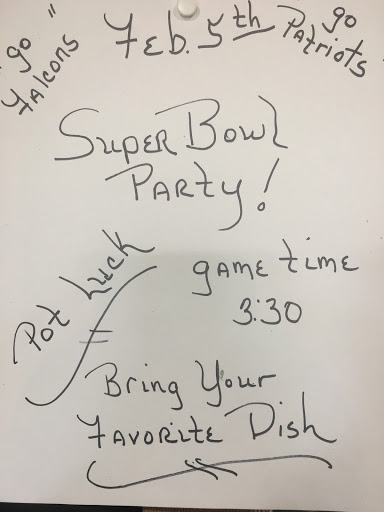 "go Falcons"
Feb. 5th
go Patriots
Super Bowl
Party!
Pot Luck
game time
3:30
Bring Your
Favorite Dish